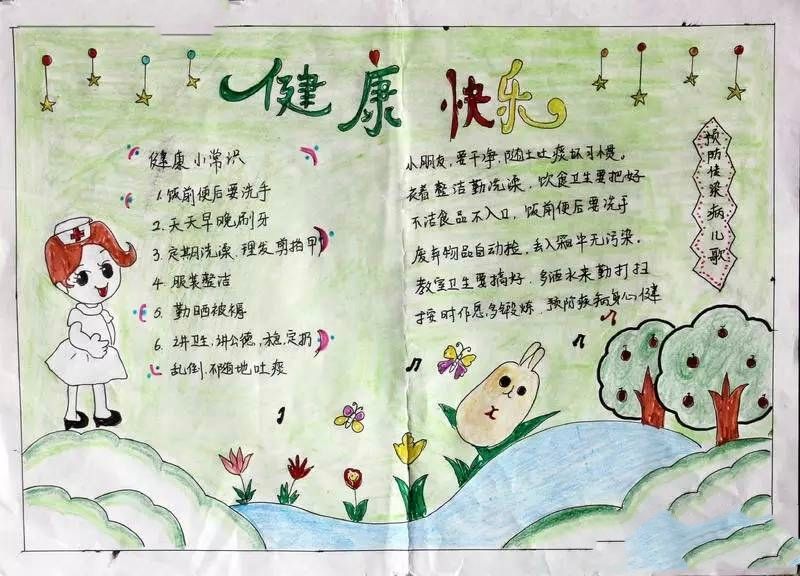 健康 快乐
健康小常识
1. 饭前便后要洗手
2. 天天早晚刷牙
3. 定期洗澡、理发剪指甲
4. 服装整洁
5. 勤晒被褥
6. 讲卫生、讲公德、扔
乱倒、不随地吐痰
预防传染病儿歌
小朋友,要干净,随土吐痰坏习惯。
衣着整洁勤洗澡,饮食卫生要把好
不洁食品不入口,饭前便后要洗手
废弃物品自动捡,丢入箱中无污染。
教室卫生要搞好,多洒水来勤打扫
按时作息多锻炼,预防疾病身心健